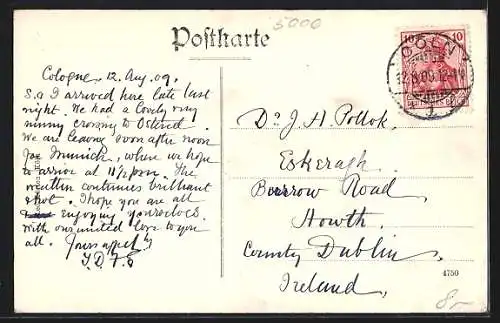 5000
Postkarte
10 10
CÖLN
12.8.09.12-1
DEUTSCHES REICH
Cologne, 12 Aug. 09.
S. & I arrived here late last
night. We had a lovely very
sunny crossing to Ostend.
We are leaving soon after noon
for Munich, where we hope
to arrive at 11½ pm. The
weather continues brilliant
& hot. I hope you are all
enjoying yourselves.
With our united love to you
all. Yours affect.ly
Dr. J. H. Pollok,
Eskeragh
Burrow Road
Howth.
County Dublin
Ireland,
4750
8.—